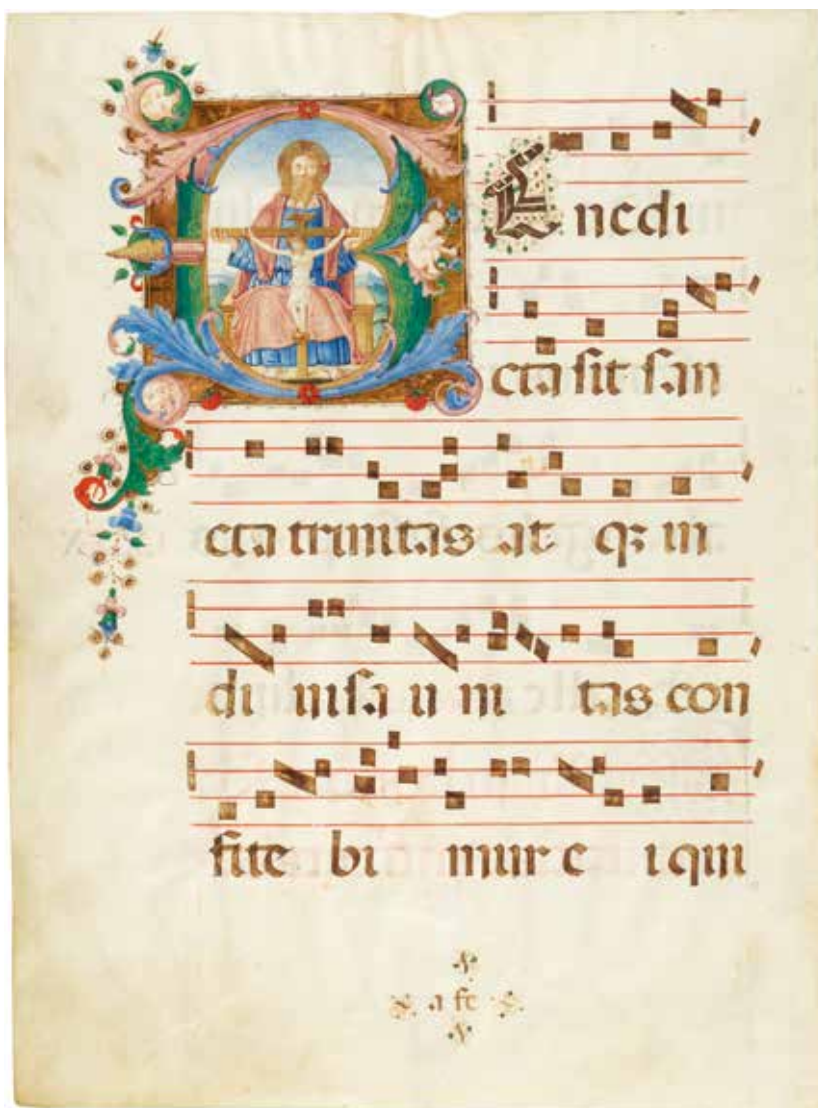 BEnedi
cta sit san
cta trinitas at q; in
di uisa u ni tas con
fite bi mur e i qui
a fe